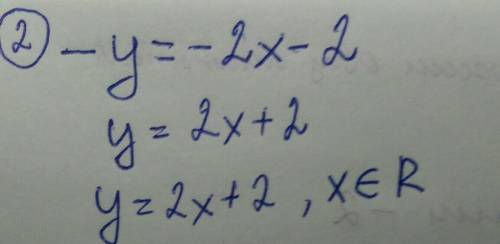 ② -y = -2x - 2
y = 2x + 2
y = 2x + 2, x ∈ R